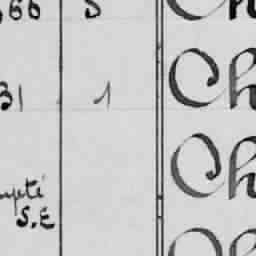 66 5 Ch
31 1 Ch
Ch
upté
S.E Ch